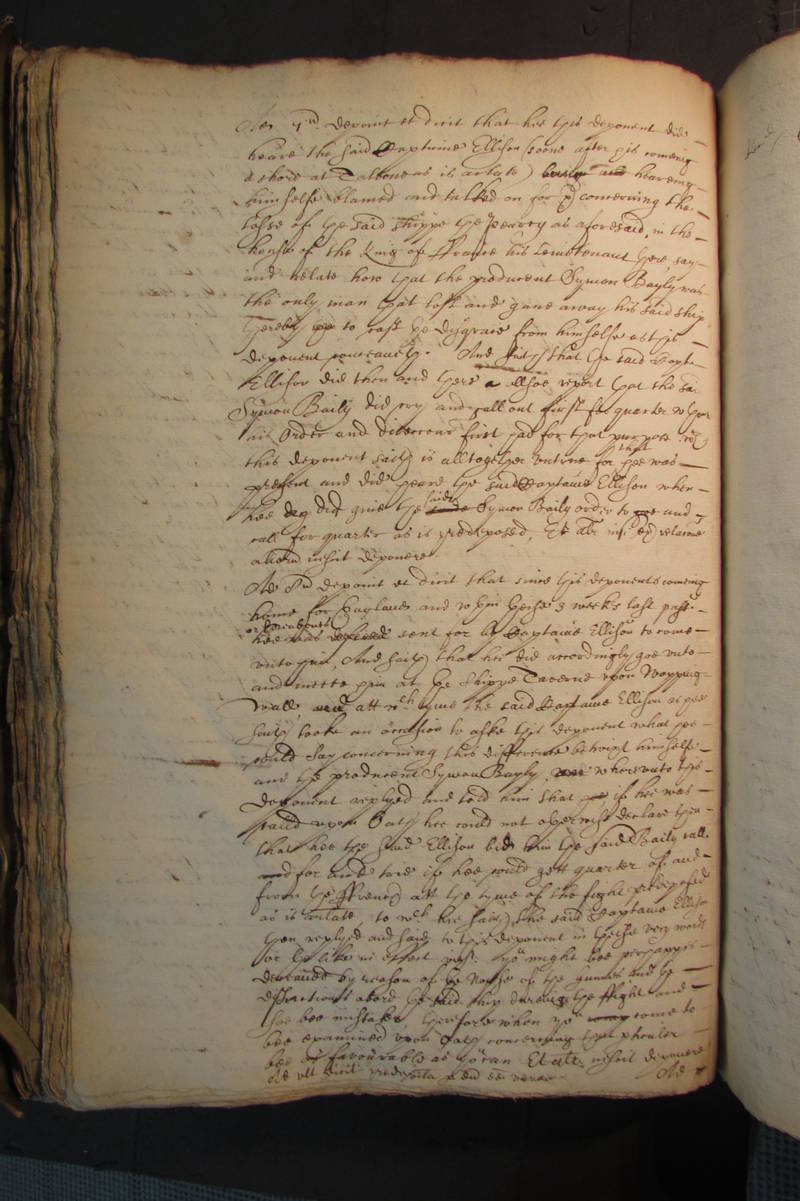 Ad 4um deponit et dicit that hee this deponent did
heare the said Captaine Ellison (soone after his coming
a shore at as is arlate) hearing
himselfe blamed and talked on for concerning the
losse of the said shippe the Pearcy as aforesaid, in the
house of the King of France his Leiutenant there say
and relate how that the producent Symon Bayly was
the only man that lost and gave away his said ship
thereby to cast the disgrace from himselfe as this
deponent conceaveth. And saith that the said Capt
Ellison did then and there allsoe report that the sd
Symon Baily did cry and call out first for quarter
his order and first had for that purpose
this deponent saith is alltogether untrue for that hee was
present and did heare the said Captaine Ellison when
hee did give the said Symon Baily order to and
call for quarter as is predeposed, Et
deponere
Ad 5um deponit et dicit that since this deponents coming
home for England and within theise 3 weekes last past
hee this deponent was sent for by Captaine Ellison to come
unto him, And saith that hee did accordingly goe unto
and meete him at the Shippe Taverne upon Wapping
Wall, att wch tyme the said Captaine Ellison as hee
saith tooke an occasion to aske this deponent what hee
could say concerning this difference betwixt himselfe
and the producent Symon Bayly, whereunto this
deponent replyed and told him that if hee was
upon Oath hee could not otherwise declare then
that hee the said Ellison bid him the said Baily call
for and trie if hee could gett quarter of and
from the ffrench att the tyme of the fight predeposed
as is arlate, to wch hee saith the said Captaine Ellison
then replyed and said to this deponent in theise very words
or the like in effect vizt: you might bee perhapps
deceaved by reason of the Noise of the gunnes and the
distractions abord the said ship during the ffight and
soe bee mistaken, therefore when you come to
bee examined upon Oath concerning that
bee as favourable as you can Et nescit deponere
Ad ult dicit predeposita per eum esse vera
Ad